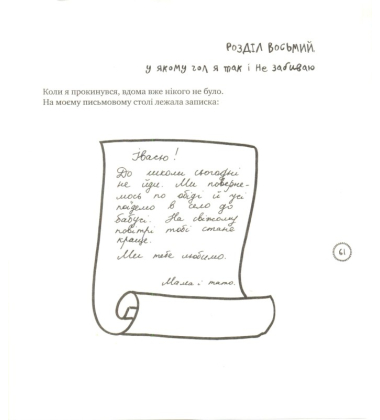 РОЗДІЛ ВОСЬМИЙ,
у якому гол я так і не забиваю
Коли я прокинувся, вдома вже нікого не було.
На моєму письмовому столі лежала записка:
Івасю!
До школи сьогодні
не йди. Ми поверне-
мось по обіді й усі
поїдемо в село до
бабусі. На свіжому
повітрі тобі стане
краще.
Ми тебе любимо.
Мама і тато.
61